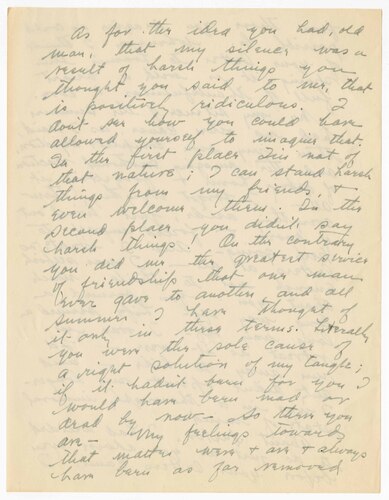 As for the idea you had, old
man, that my silence was a
result of harsh things you
thought you said to me, that
is positively ridiculous. I
don't see how you could have
allowed yourself to imagine that.
In the first place I'm not of
that nature; I can stand harsh
things from my friends, +
even welcome them. In the
second place you didn't say
harsh things! On the contrary
you did me the greatest service
of friendship that one man
ever gave to another, and all
summer I have thought of
it only in these terms. Literally
you were the sole cause of
a right solution of my tangle;
if it hadn't been for you I
would have been mad or
dead by now. So there you
are— My feelings towards
that matter were + are + always
have been as far removed